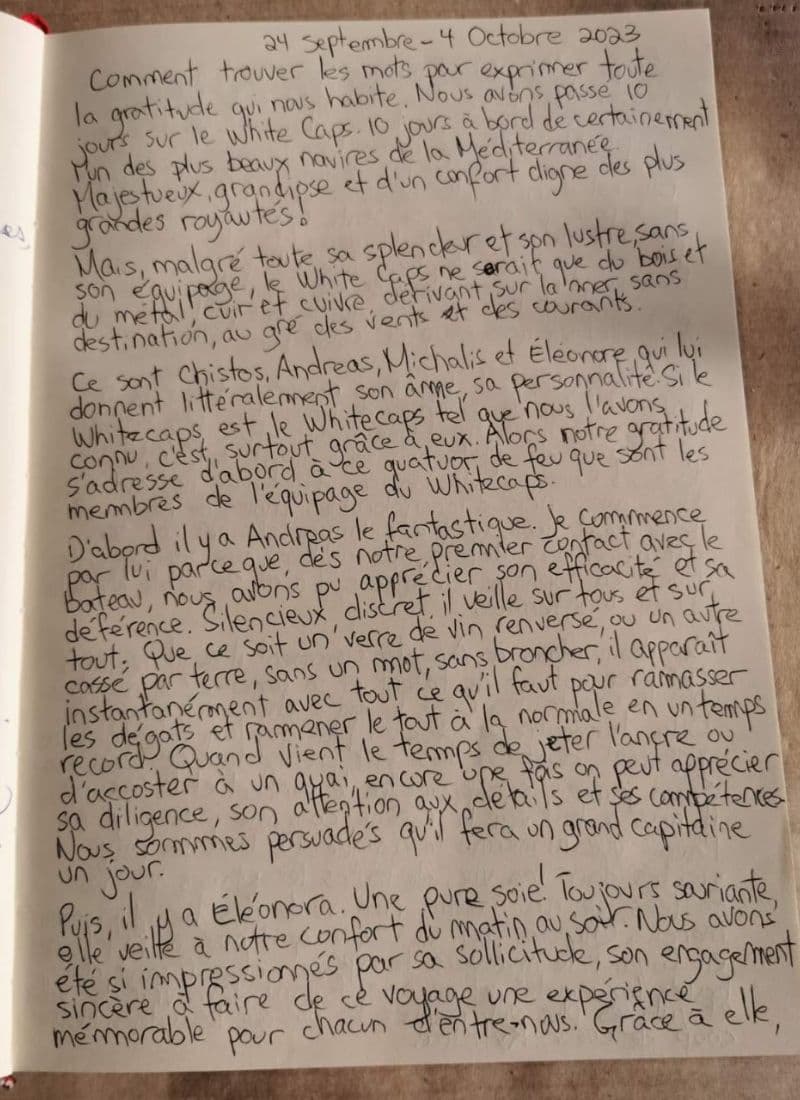 24 Septembre - 4 Octobre 2023
Comment trouver les mots pour exprimer toute
la gratitude qui nous habite. Nous avons passé 10
jours sur le White Caps. 10 jours à bord de certainement
l'un des plus beaux navires de la Méditerranée.
Majestueux, grandiose et d'un confort digne des plus
grandes royautés!
Mais, malgré toute sa splendeur et son lustre, sans
son équipage, le White Caps ne serait que du bois et
du métal, cuir et cuivre, dérivant sur la mer, sans
destination, au gré des vents et des courants.
Ce sont Chistos, Andreas, Michalis et Éléonore, qui lui
donnent littéralement son âme, sa personnalité. Si le
Whitecaps est le Whitecaps tel que nous l'avons
connu, c'est surtout grâce à eux. Alors notre gratitude
s'adresse d'abord à ce quatuor de feu que sont les
membres de l'équipage du Whitecaps.
D'abord il y a Andreas le fantastique. Je commence
par lui parce que, dès notre premier contact avec le
bateau, nous avons pu apprécier son efficacité et sa
déférence. Silencieux, discret, il veille sur tous et sur
tout. Que ce soit un verre de vin renversé, ou un autre
cassé par terre, sans un mot, sans broncher, il apparaît
instantanément avec tout ce qu'il faut pour ramasser
les dégats et ramener le tout à la normale en un temps
record! Quand vient le temps de jeter l'ancre ou
d'accoster à un quai, encore une fois on peut apprécier
sa diligence, son attention aux détails et ses compétences.
Nous sommes persuadés qu'il fera un grand capitaine
un jour.
Puis, il y a Éléonora. Une pure soie! Toujours souriante,
elle veille à notre confort du matin au soir. Nous avons
été si impressionnés par sa sollicitude, son engagement
sincère à faire de ce voyage une expérience
mémorable pour chacun d'entre-nous. Grâce à elle,